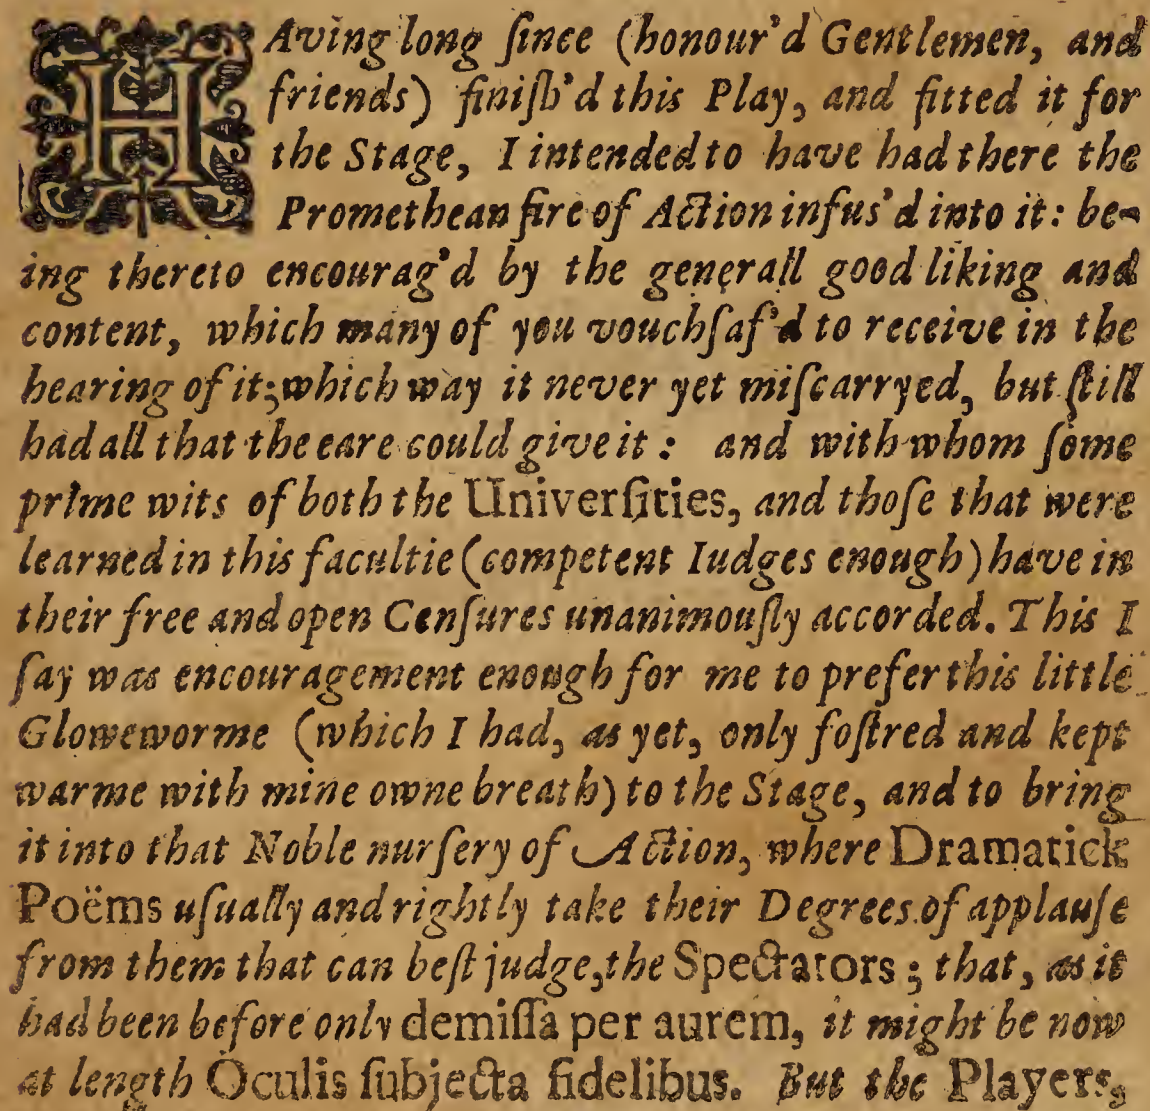 HAving long ſince (honour'd Gentlemen, and
friends) finiſh'd this Play, and fitted it for
the Stage, I intended to have had there the
Promethean fire of Action infus'd into it: be-
ing thereto encourag'd by the generall good liking and
content, which many of you vouchſaf'd to receive in the
hearing of it; which way it never yet miſcarryed, but ſtill
had all that the eare could give it: and with whom ſome
prime wits of both the Univerſities, and thoſe that were
learned in this facultie (competent Iudges enough) have in
their free and open Cenſures unanimouſly accorded. This I
ſay was encouragement enough for me to prefer this little
Gloweworme (which I had, as yet, only foſtred and kept
warme with mine owne breath) to the Stage, and to bring
it into that Noble nurſery of Action, where Dramatick
Poëms uſually and rightly take their Degrees of applauſe
from them that can beſt judge, the Spectators; that, as it
had been before only demiſſa per aurem, it might be now
at length Oculis ſubjecta fidelibus. But the Players,